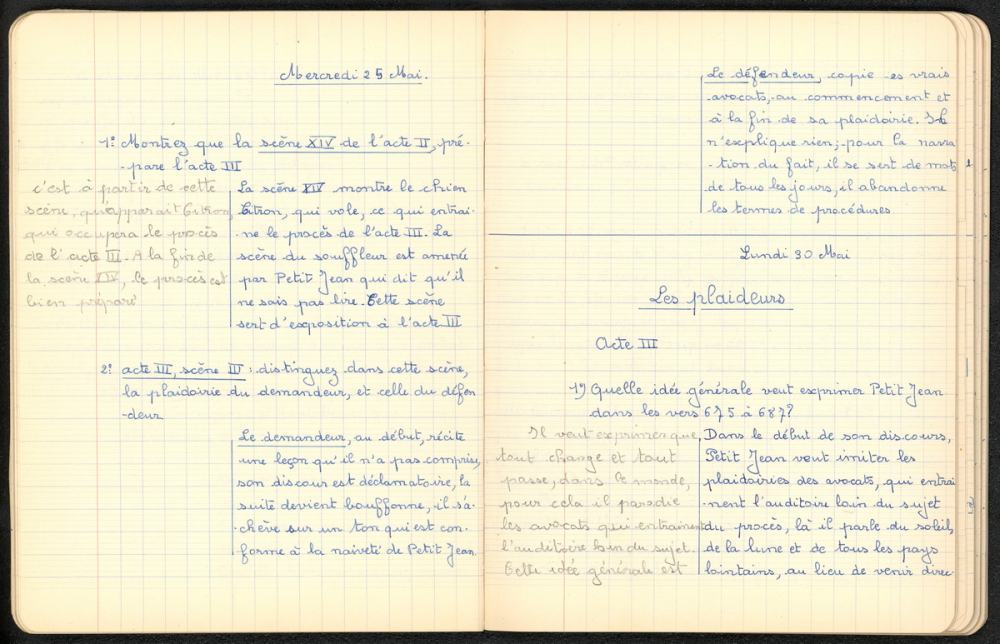 Mercredi 25 Mai.
1º Montrez que la scène XIV de l'acte II, pré-
-pare l'acte III
c'est à partir de cette
scène, qu'apparait Citron,
qui occupera le procès
de l'acte III. A la fin de
la scène XIV, le procès est
bien préparé
La scène XIV montre le chien
Citron, qui vole, ce qui entrai-
-ne le procès de l'acte III. La
scène du souffleur est amené
par Petit Jean qui dit qu'il
ne sais pas lire. Cette scène
sert d'exposition à l'acte III
2º acte III, scène III : distinguez dans cette scène,
la plaidoirie du demandeur, et celle du défen
-deur
Le demandeur, au début, récite
une leçon qu'il n'a pas compris,
son discour est déclamatoire, la
suite devient bouffonne, il s'a-
-chève sur un ton qui est con-
forme à la naiveté de Petit Jean
Le défendeur, copie es vrais
avocats, au commencement et
à la fin de sa plaidoirie. Il
n'explique rien; pour la narra
-tion du fait, il se sert de mots
de tous les jours, il abandonne
les termes de procédures
Lundi 30 Mai
Les plaideurs
Acte III
1º) Quelle idée générale veut exprimer Petit Jean
dans les vers 675 à 687?
Il veut exprimer que,
tout change et tout
passe, dans le monde,
pour cela il parodie
les avocats qui entrainent
l'auditoire loin du sujet.
Cette idée générale est
Dans le début de son discours,
Petit Jean veut imiter les
plaidoiries des avocats, qui entrai
-nent l'auditoire loin du sujet
du procès, là il parle du soleil,
de la lune et de tous les pays
lointains, au lieu de venir direc-